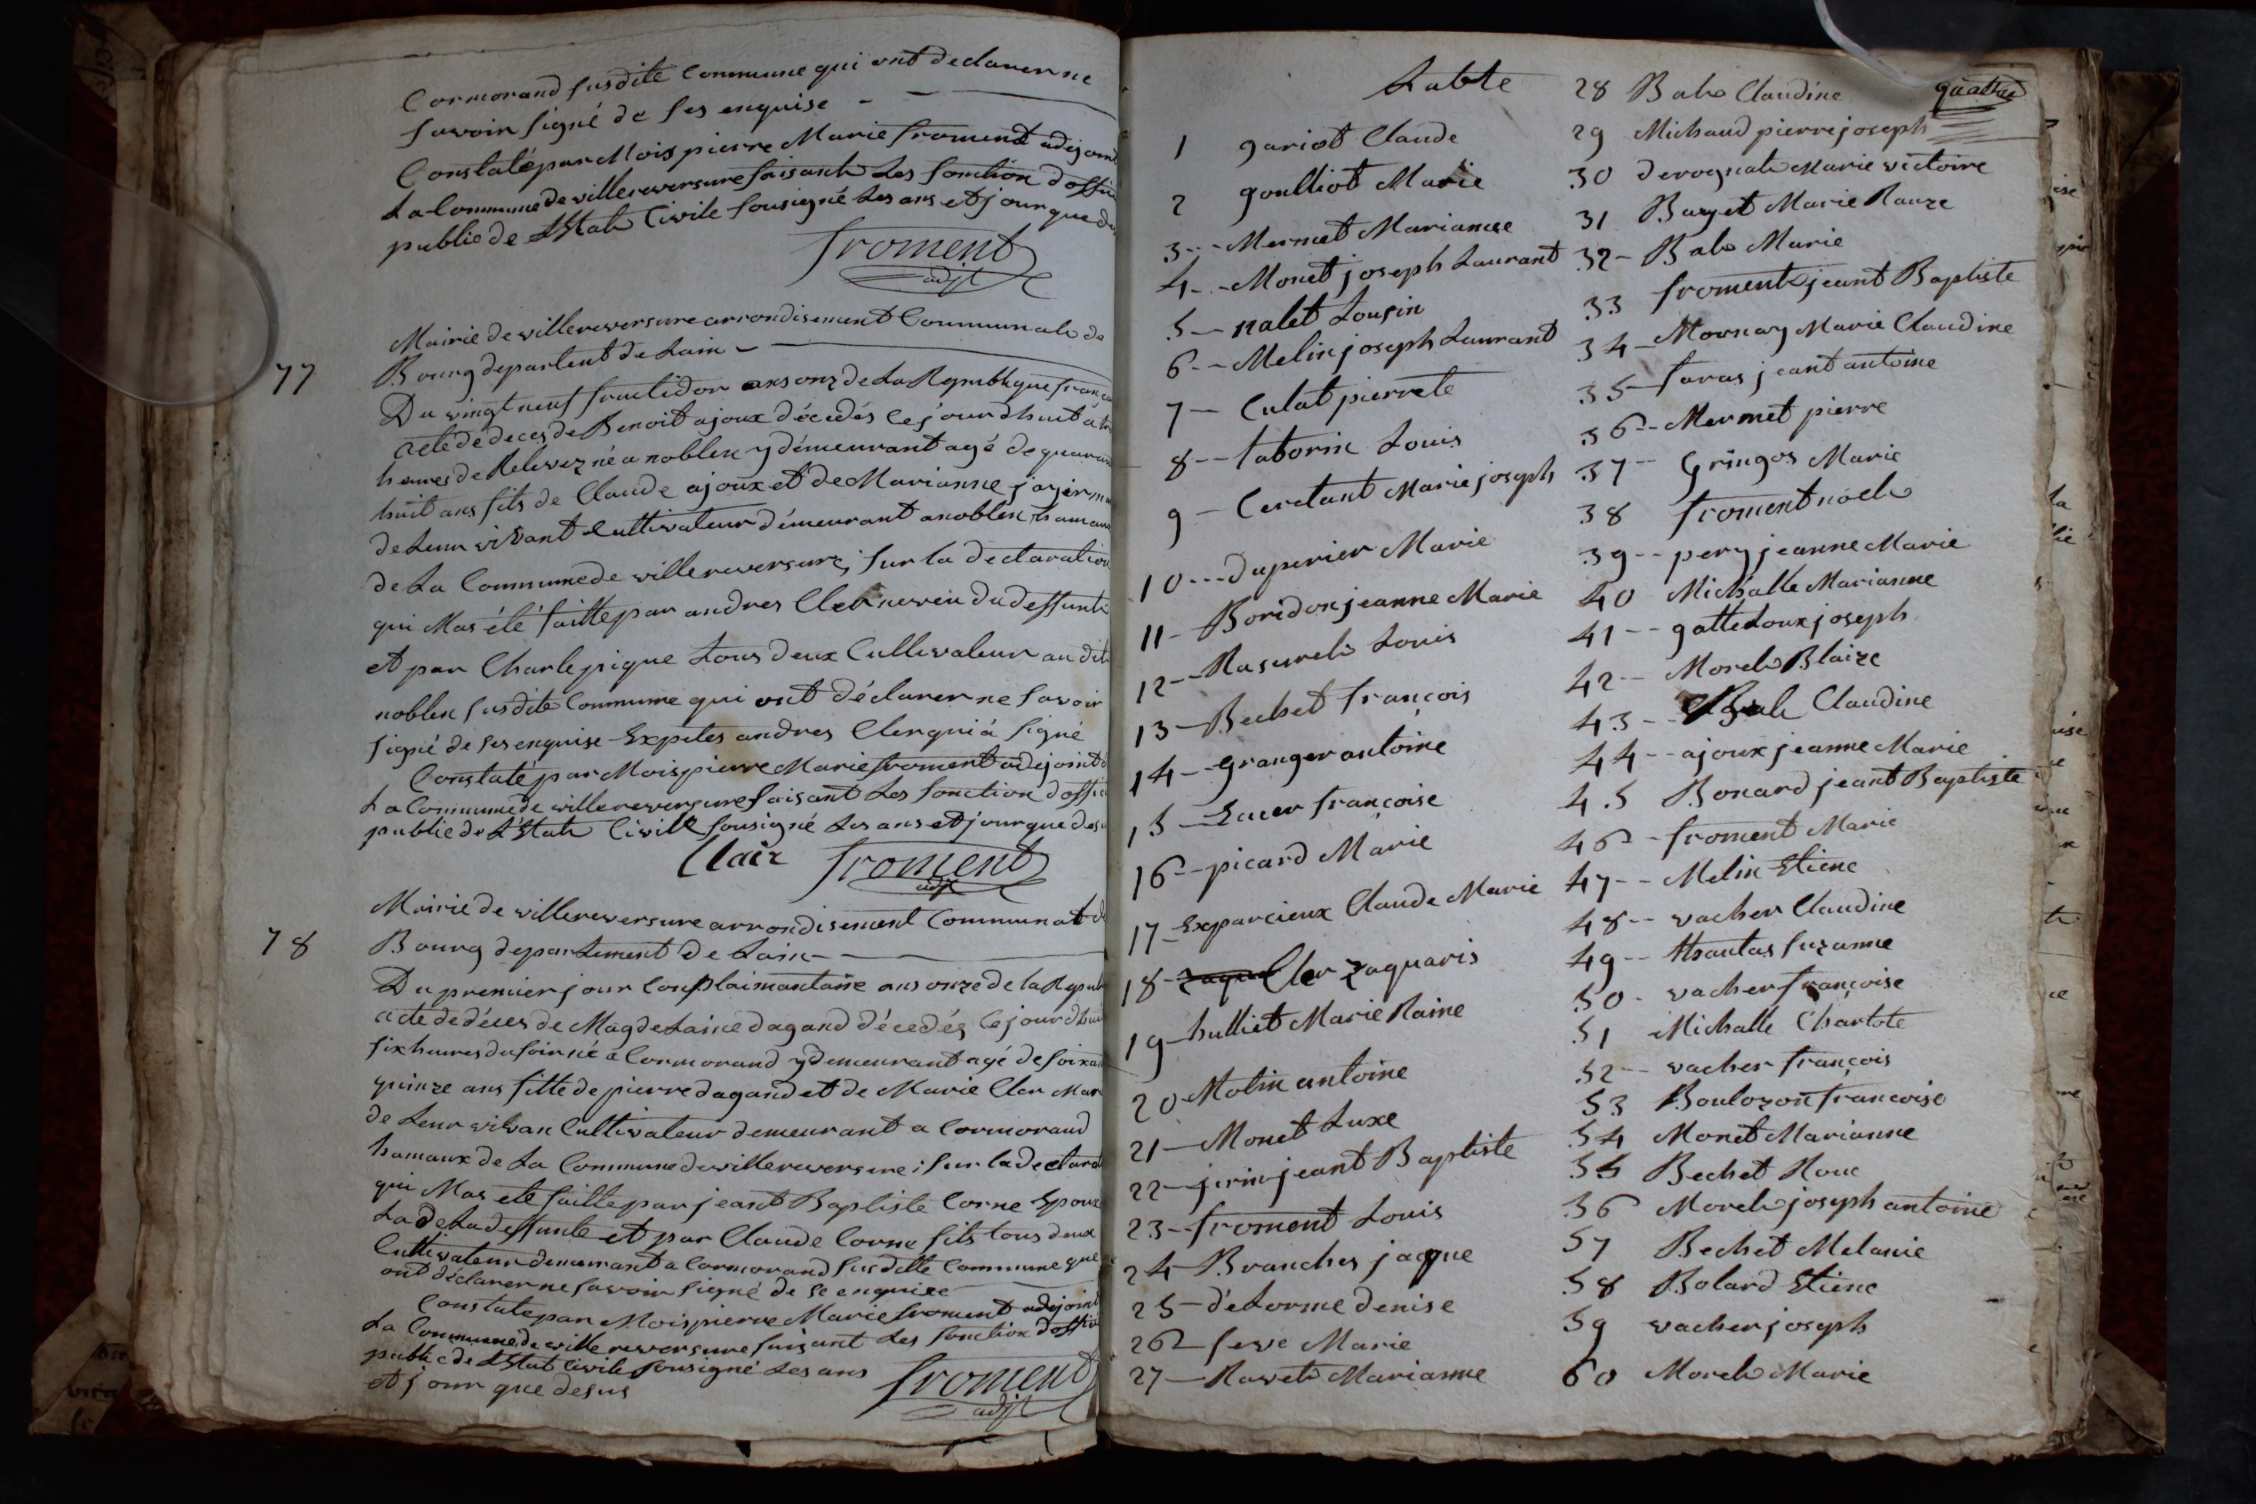 Cormorand susdite Commune qui ont declarer ne
savoir signé de ses enquise
Constaté par Mois pierre Marie froment adejoint
La Commune de villereversure faisant Les fonction d'offi
public de L'Etat Civile sousigné Les ans et jour que de
froment
adjt
77
Mairie de villereversure arrondisement Communale de
Bourg departent de Lain
Du vingt neuf fructidor ans onz de La Republique franç
acte de deces de Benoit ajoux décedés ce jourdhuit à
heures de Relevez né a noblen y démeurant agé de quaran
huit ans fils de Claude ajoux et de Marianne
de Leur vivant Cultivateur démeurant a noblen hamau
de La Commune de villereversure, sur la declaration
qui Mas été faitte par andres Cler neveu du deffunt
et par Charle pique tous deux Cultivateur au dit
noblen susdite Commune qui ont déclarer ne savoir
signé de ses enquise Exptes andres Cler qui à signé
Constaté par Mois pierre Marie froment adejoint d
La Commune de villereversure faisant Les fonction d'offic
public de L'Etat Civile sousigné Les ans et jour que des
Clair froment
adjt
78
Mairie de villereversure arrondisement Communal d
Bourg departement de Lain
Du premier jour Complaimantaire ans onze de la Repub
acte de déces de Magdelaine dagand décedés ce jourdhui
six heures du soir né a Cormorand y demeurant agé de soixan
quinze ans fille de pierre dagand et de Marie Cler Mar
de Leur vivan Cultivateur demeurant a Cormorand
hamaux de La Commune de villereversure ; sur la declarat
qui Mas eté faitte par jeant Baptiste Corne Epoux
La de La deffunte et par Claude Corne fils tous deux
Cultivateur demeurant a Cormorand susditte Commune que
ont déclarer ne savoir signé de se enquise
Constate par Mois pierre Marie froment adejoint
La Commune de villereversure faisant Les fonction d'offi
public de L'Etat Civile sousigné Les ans
et jour que desus
froment
adjt
table
1 gariot Claude
2 goulliot Marie
3 Mermet Marianne
4 Monet joseph Laurant
5 nalet
6 Melin joseph Laurant
7 Culat pierrete
8 taborin Louis
9 Marie joseph
10 duperier Marie
11 Boridon jeanne Marie
12 Rasureh Louis
13 Bechet françois
14 Granger antoine
15 françoise
16 picard Marie
17 Exparcieux Claude Marie
18 Cler Zaquaris
19 hulliet Marie Raine
20 Molin antoine
21 Monet Luxe
22 jirin jeant Baptiste
23 froment Louis
24 Branches jaque
25 déLorme denise
26 feve Marie
27 Raveh Marianne
28 Bah Claudine
quatre
29 Michaud pierre joseph
30 Marie victoire
31 Buget Marie Rauze
32 Bah Marie
33 froment jeant Baptiste
34 Mornay Marie Claudine
35 faras jeant antoine
36 Mermet pierre
37 Gringos Marie
38 froment noelh
39 pery jeanne Marie
40 Michalle Marianne
41 galleloux joseph
42 Moreh Blaize
43 Claudine
44 ajoux jeanne Marie
45 Bonard jeant Baptiste
46 froment Marie
47 Melin Etiene
48 vacher Claudine
49 suzanne
50 vacher françoise
51 Michalle Charlote
52 vacher françois
53 Boulozon francoise
54 Monet Marianne
55 Bechet
56 Moreh joseph antoine
57 Bechet Melanie
58 Bolard Etiene
59 vacher joseph
60 Moreh Marie